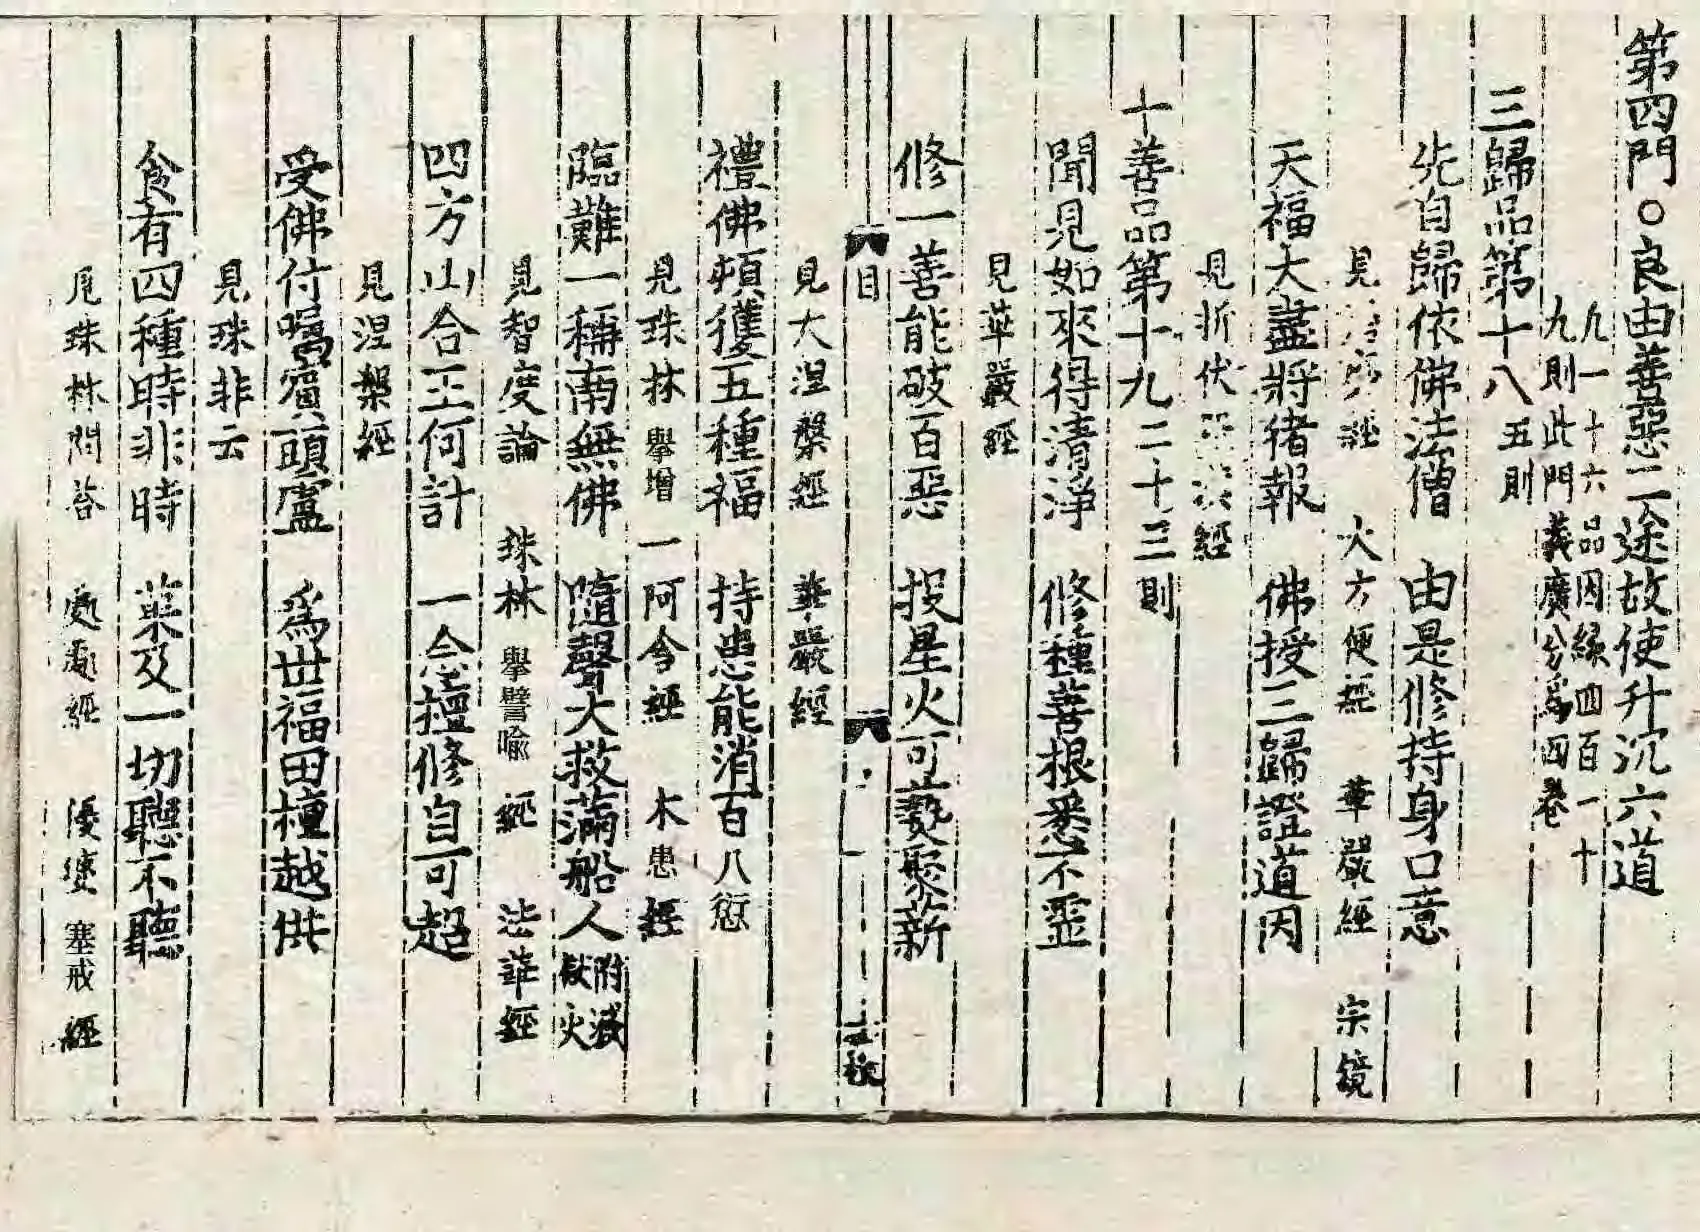 第四門○良由善惡二途故使升沉六道
九一十六品因緣四百一十
九則此門義廣分爲四卷
三歸品第十八 五則
先自歸依佛法僧 由是修持身口意
見 經 大方便經 華嚴經 宗鏡
天福大盡將猪報 佛授三歸證道因
見折伏 經
十善品第十九 二十三則
聞見如來得清淨 修種善根悉不歪
見華嚴經
修一善能破百惡 投星火可爇聚薪
目
見大涅槃經 華嚴經
禮佛頓獲五種福 持患能消百八愆
見珠林 舉增一阿含經 木患經
臨難一稱南無佛 隨聲大救滿船人 附滅獄火
見智度論 珠林 舉譬喻經 法華經
四方山合王何計 一念檀修自可超
見涅槃經
受佛付囑賓頭盧 爲世福田檀越供
見珠非云
食有四種時非時 菜及一切聽不聽
見珠林問答 處處經 優婆塞戒經